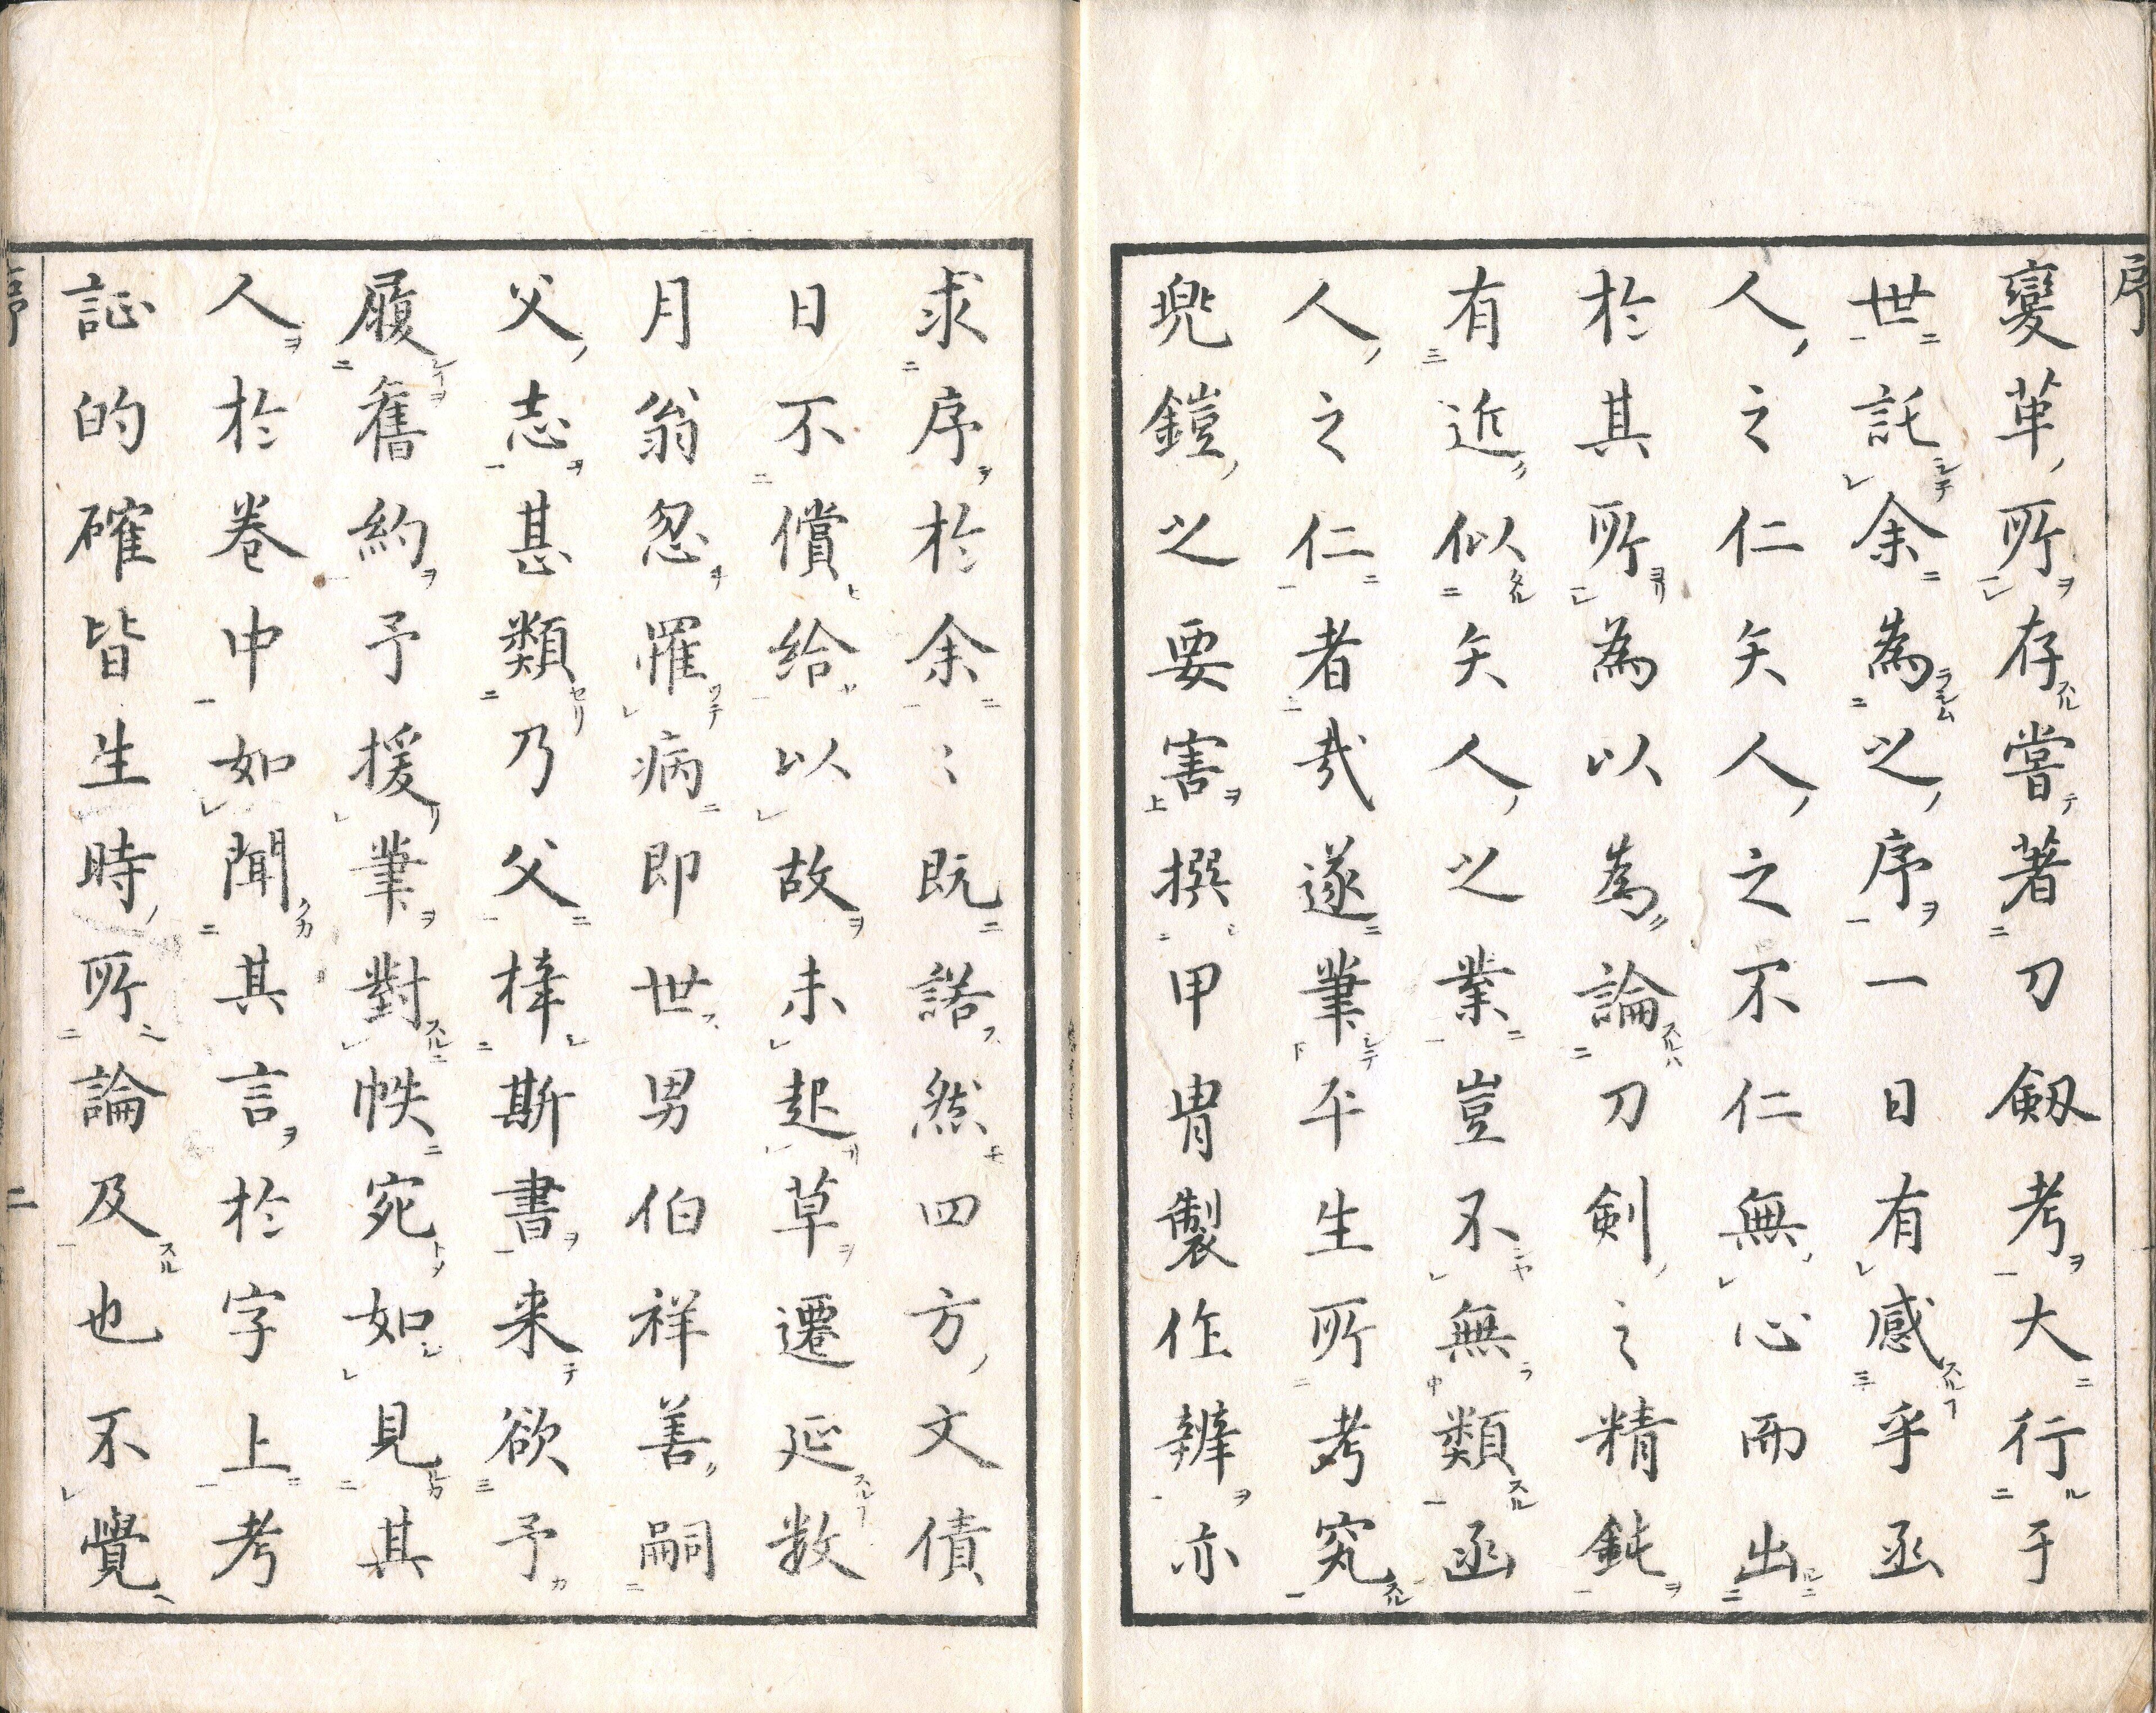 序
變革所存嘗著刀劔考大行于
世託余為之序一日有感乎函
人之仁矢人之不仁無心而出
於其所為以為論刀剣之精鈍
有近似矢人之業豈不無類函
人之仁者哉遂筆平生所考究
兜鎧之要害撰甲冑製作辨亦
求序於余〻既諾然四方文債
日不償給以故未起草遷延数
月翁忽罹病即世男伯祥善嗣
父志甚類乃父梓斯書来欲予
履舊約予援筆對帙宛如見其
人於巻中如聞其言於字上考
証的確皆生時所論及也不覺
序
二